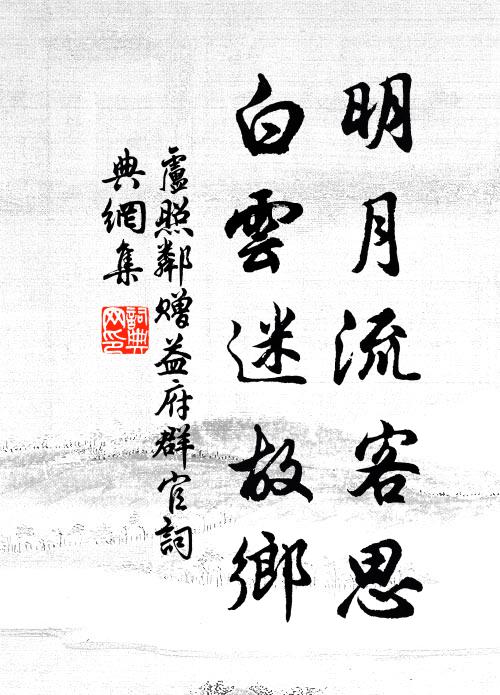 明月流客思
白雲迷故鄉
盧照鄰贈益府群官詞
典網集
詞典
网印